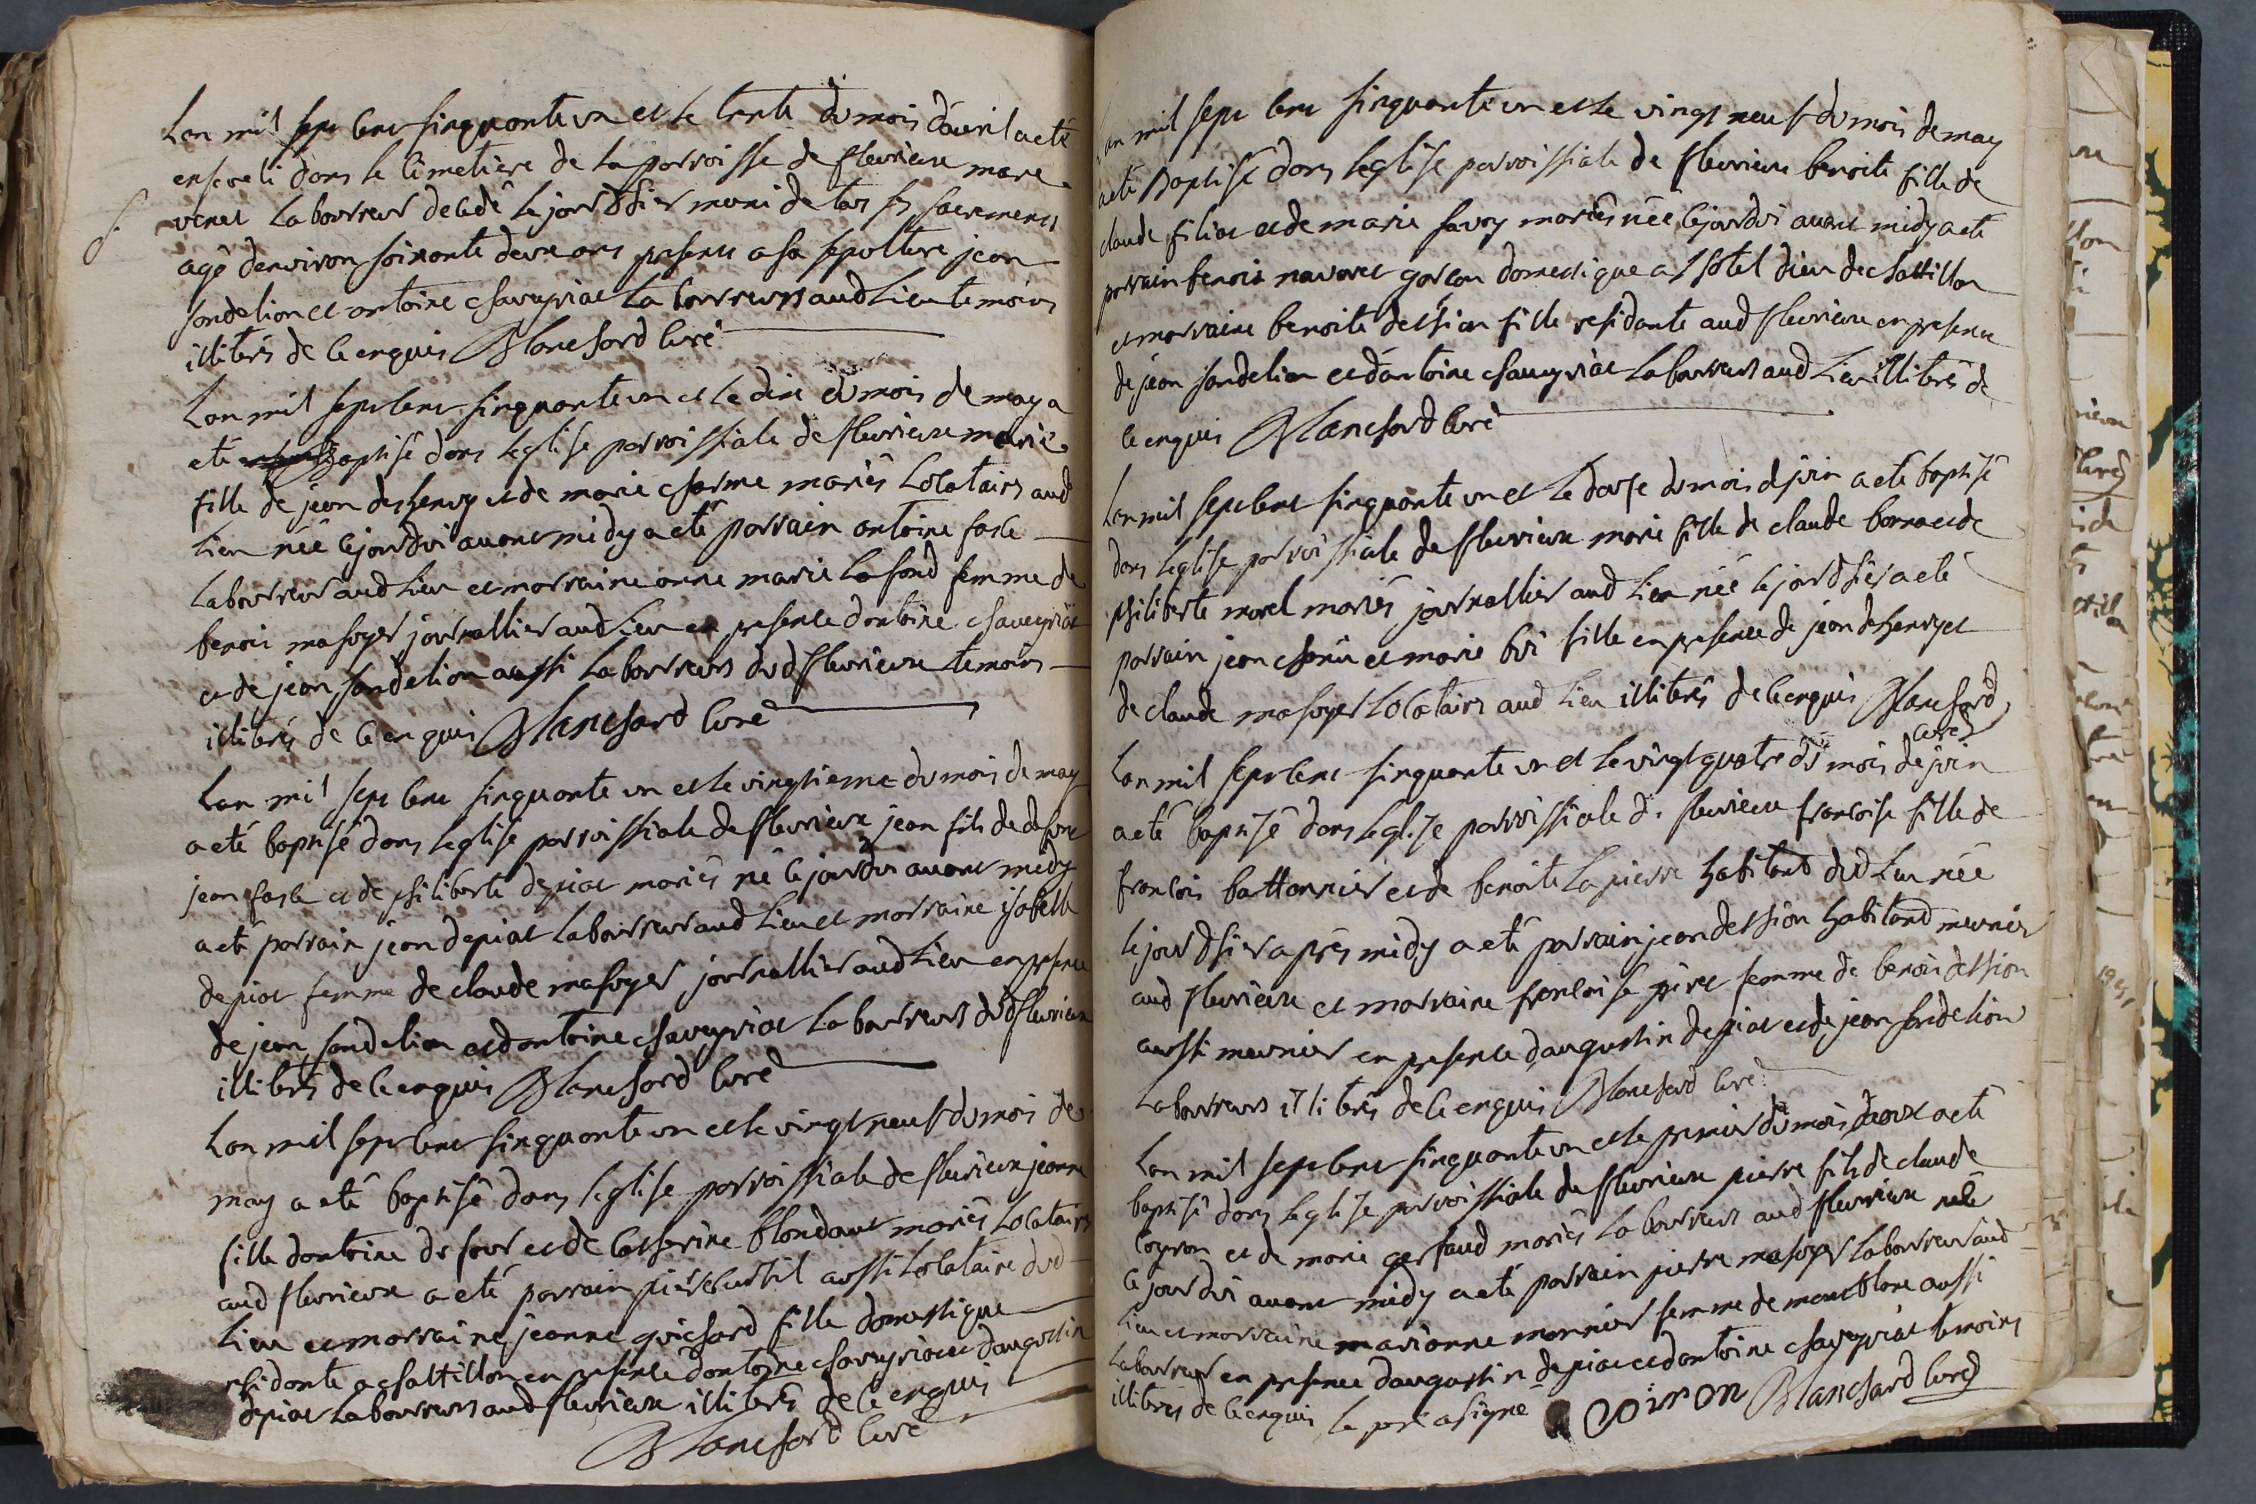 Lan mil sept cent sinquante un et le trente du mois davril a eté
enseveli dans le cimetière de la parroisse de fleurieux marc
venet laboureur decedé le jour d'hier muni de tous ses sacrements
agé denviron soixante deux ans presents a sa sepolture jean
sandelion et antoine chaveyriat laboureurs aud lieu temoins
illiterés de ce enquis Blanchard curé
Lan mil sept cent sinquante un et le dix du mois de may a
eté baptisé dans leglise parroissiale de fleurieux marie
fille de jean desgenry et de marie charme mariés locatairs aud
lieu née cejourdui avant midy a eté parrain antoine
laboureur aud lieu et marraine anne marie lafond femme de
benoi masoyer journallier aud lieu en presence dantoine chaveyriat
et de jean sandelion aussi laboureurs dud fleurieux temoins
illiterés de ce enquis Blanchard curé
Lan mil sept cent sinquante un et le vingtieme du mois de may
a eté baptisé dans leglise parroissiale de fleurieux jean fils de
jean et de philiberte depiat mariés né cejourdui avant midy
a eté parrain jean depiat laboureur aud lieu et marraine isabelle
depiat femme de claude masoyer journallier aud lieu en presence
de jean sandelion et dantoine chaveyriat laboureurs dud fleurieux
illiterés de ce enquis Blanchard curé
Lan mil sept cent sinquante un et le vingt neuf du mois de
may a eté baptisé dans leglise parroissiale de fleurieux jeanne
fille dantoine dufour et de catherine blondant mariés locatairs
aud fleurieux a eté parrain aussi locataire dud
lieu et marraine jeanne guichard fille domestique
residante a chattillon en presence dantoine chaveyriat et daugustin
depiat laboureurs aud fleurieux illiterés de ce enquis
Blanchard curé
Lan mil sept cent sinquante un et le vingt neuf du mois de may
a eté baptisé dans leglise parroissiale de fleurieux benoite fille de
claude filiat et de marie savoy mariés née cejourdui avant midy a eté
parrain benoit navoret garcon domestique a lhotel dieu de chattillon
et marraine benoite fille residante aud fleurieux en presence
de jean sandelion et dantoine chaveyriat laboureurs aud lieu illiterés de
ce enquis Blanchard curé
Lan mil sept cent sinquante un et le douse du mois de juin a eté baptisé
dans leglise parroissiale de fleurieux marie fille de claude bonna et de
philiberte morel mariés journallier aud lieu née le jour d'hier a eté
parrain jean et marie bui fille en presence de jean desgenry et
de claude masoyer locatairs aud lieu illiterés de ce enquis Blanchard
curé
Lan mil sept cent sinquante un et le vingt quatre du mois de juin
a eté baptisé dans leglise parroissiale de fleurieux francoise fille de
francois battannier et de benoite lapierre habitant dud lieu née
le jour d'hier apres midy a eté parrain jean habitand meunier
aud fleurieux et marraine francoise femme de benoi
aussi meunier en presence daugustin depiat et de jean sandelion
laboureurs illiterés de ce enquis Blanchard curé
Lan mil sept cent sinquante un et le premier du mois daoux a eté
baptisé dans leglise parroissiale de fleurieux pierre fils de claude
loyron et de marie gerfaud mariés laboureurs aud fleurieux né
cejourdui avant midy a eté parrain pierre masoyer laboureur aud
lieu et marraine marianne monnier femme de marc blanc aussi
laboureur en presence daugustin depiat et dantoine chaveyriat temoins
illiterés de ce enquis le pere a signé Loiron Blanchard curé